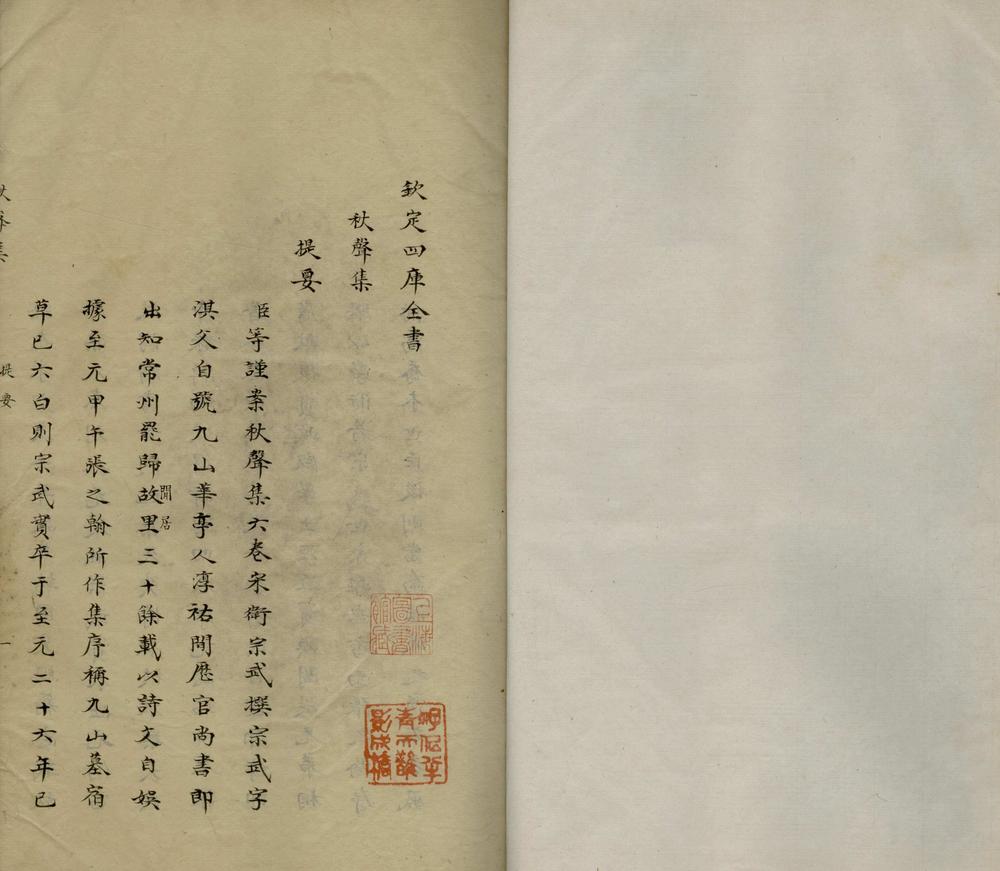 欽定四庫全書
秋聲集
提要
臣等謹案秋聲集六卷宋衛宗武撰宗武字
淇父自號九山華亭人淳祐間歷官尚書郎
出知常州罷歸故里三十餘載以詩文自娛
閒居
據至元甲午張之翰所作集序稱九山墓宿
草已六白則宗武實卒于至元二十六年已
提要
一